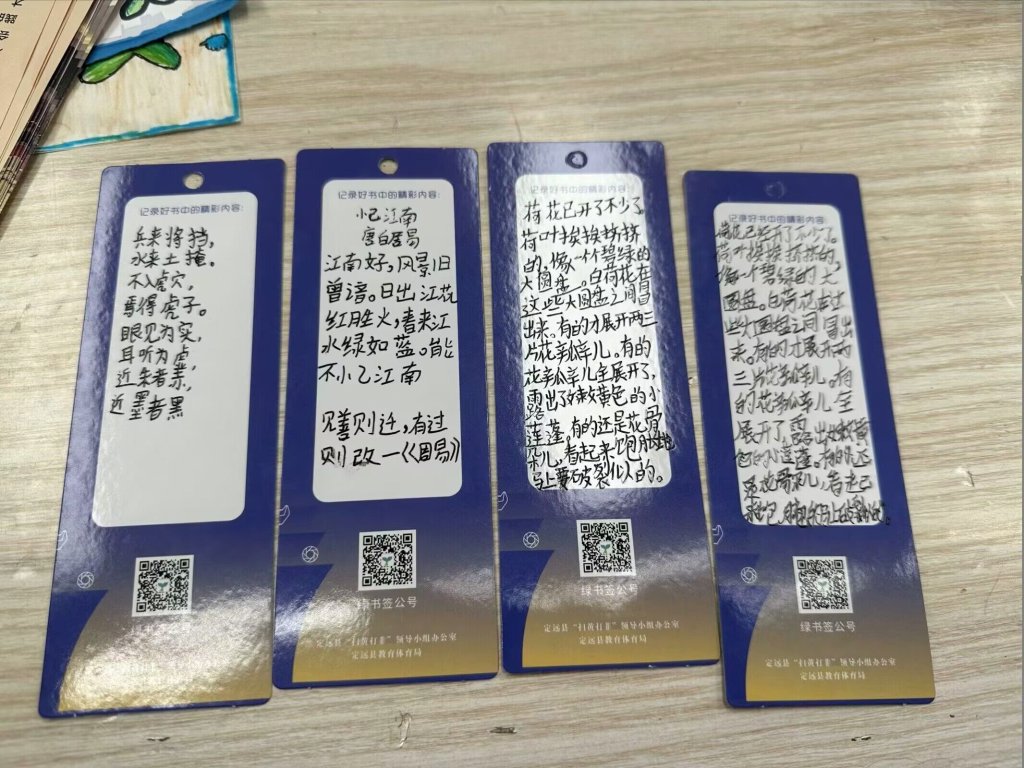 记录好书中的精彩内容:
兵来将挡,
水来土掩。
不入虎穴,
焉得虎子。
眼见为实,
耳听为虚,
近朱者赤,
近墨者黑
记录好书中的精彩内容:
忆江南
唐白居易
江南好,风景旧
曾谙。日出江花
红胜火,春来江
水绿如蓝。能
不忆江南
见善则迁,有过
则改—《周易》
绿书签公号
定远县“扫黄打非”领导小组办公室
定远县教育体育局
记录好书中的精彩内容:
荷花已开了不少了
荷叶挨挨挤挤
的,像一个个碧绿的
大圆盘。白荷花在
这些大圆盘之间冒
出来。有的才展开两三
片花瓣儿。有的
花瓣儿全展开了,
露出了嫩黄色的小
莲蓬。有的还是花骨
朵儿,看起来饱胀地
马上要破裂似的。
绿书签公号
定远县“扫黄打非”领导小组办公室
定远县教育体育局
记录好书中的精彩内容:
荷花已经开了不少了。
荷叶挨挨挤挤的,
像一个碧绿的大
圆盘。白荷花在这
些大圆盘之间冒出
来。有的才展开两
三片花瓣儿。有
的花瓣儿全
展开了,露出嫩黄
色的小莲蓬。有的还
是花骨朵儿,看起
绿书签公号
定远县“扫黄打非”领导小组办公室
定远县教育体育局